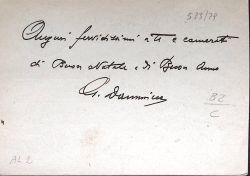 583/79
Auguri fervidissimi a te e camerati
di Buon Natale e di Buon Anno
G.
B2
C
AL 2